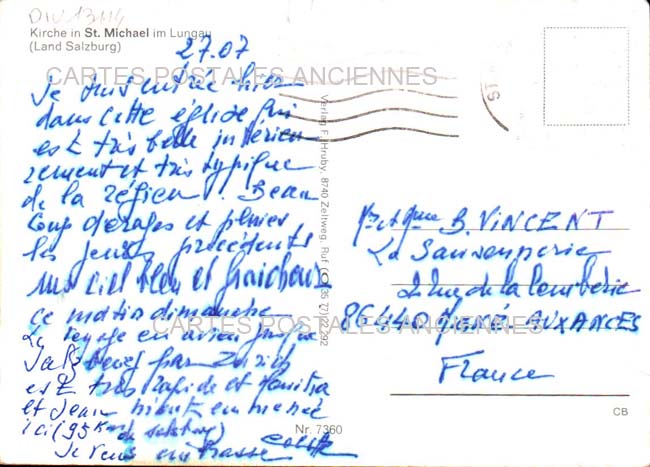 DIV 13114
Kirche in St. Michael im Lungau
(Land Salzburg)
27.07
CARTES POSTALES ANCIENNES
Je suis entrée hier
dans cette église qui
est très belle intérieu
rement et très typique
de la région. Beau
coup d'orages et pluies
les jours précédents
mais ciel bleu et fraicheur
ce matin dimanche
Le voyage en avion jusque
Salzbourg par Zurich
est très rapide et
et Jean m'ont emmené
ici (95 Km de Salzburg)
Je vous embrasse Colette
Verlag F. Hruby, 8740 Zeltweg, Ruf (0 35 77) 22 2 92
Nr. 7360
ST
Mr et Mme B. VINCENT
La
2 rue de la
86440 MIGNÉ-AUXANCES
CARTES POSTALES ANCIENNES
France
CB